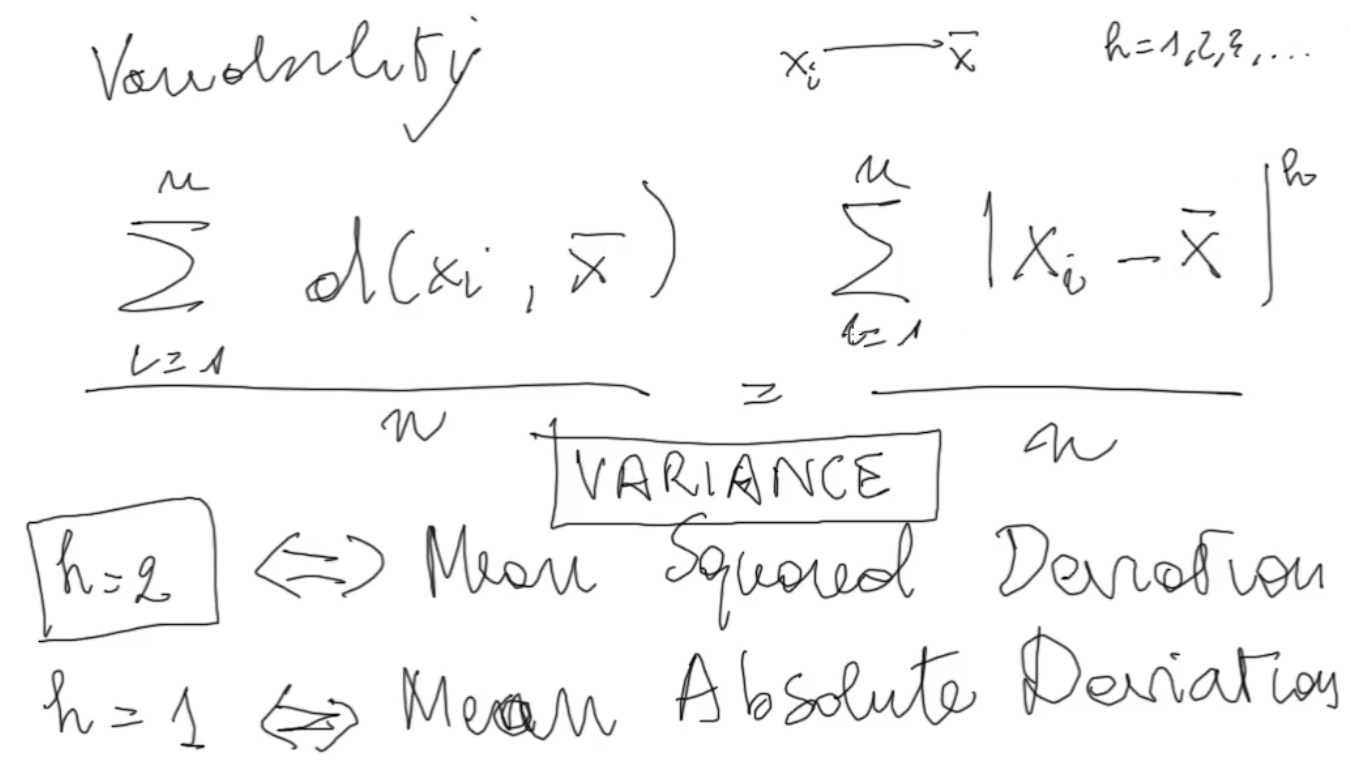 Variability
xi → x̄ h=1,2,3,...
n n
∑ d(xi, x̄) ∑ |xi - x̄|^h
i=1 i=1
=
n n
VARIANCE
h=2 ⇔ Mean Squared Deviation
h=1 ⇔ Mean Absolute Deviation